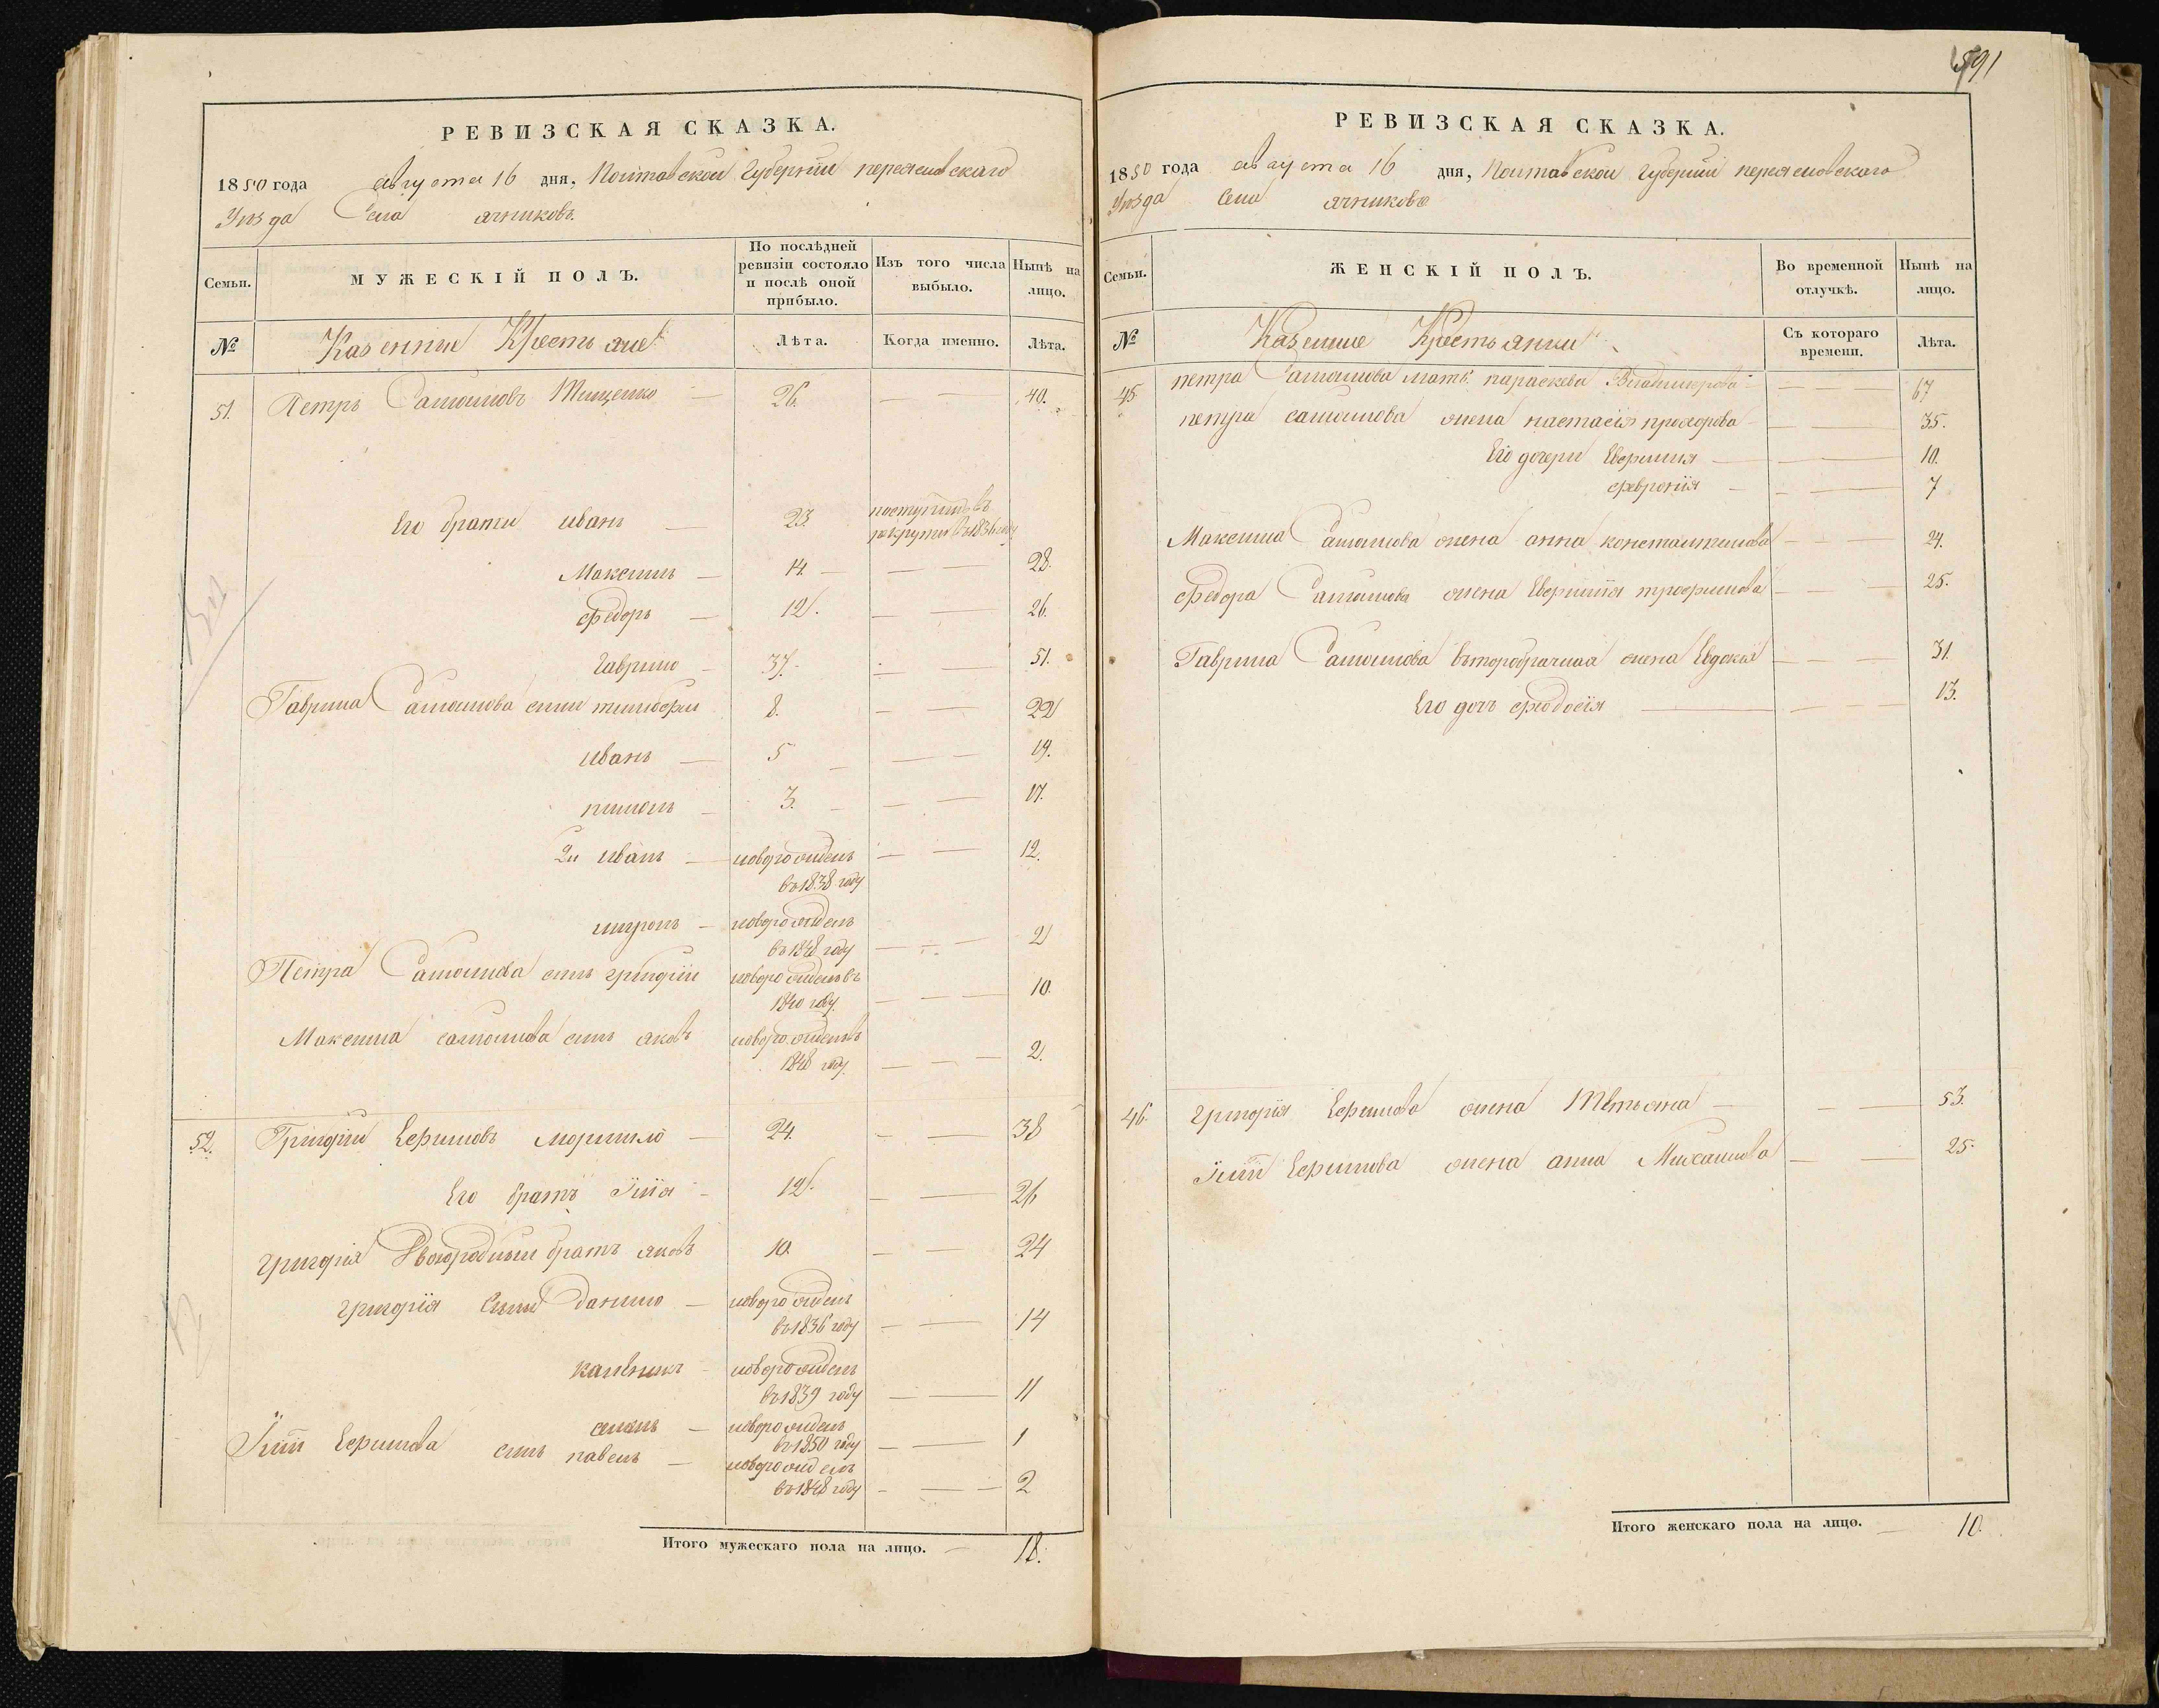 591
РЕВИЗСКАЯ СКАЗКА.
1850 года августа 16 дня, Полтавской Губернии переяславскаго
Уезда Села ячников
Семьи.
МУЖЕСКІЙ ПОЛЪ.
По послѣдней ревизіи состояло и послѣ оной прибыло.
Изъ того числа выбыло.
Нынѣ на лицо.
№
Казенние Крестьяне
Лѣта.
Когда именно.
Лѣта.
51. Петръ Самойловъ Тищенко 26. 40.
Его брати иванъ 23. поступилъ въ рекруты въ 1836 году
Максимъ 14. 28.
Федоръ 12. 26.
Гаврило 37. 51.
Гаврила Самойлова сыни тимофей 8. 22
иванъ 5 19.
пимонъ 3. 17.
2й иванъ новорожденъ 12.
въ 1838 году
миронъ новорожденъ
въ 1848 году 2
Петра Самойлова сынъ григорій новорожденъ въ
1840 году. 10.
Максима самойлова сынъ яковъ новорожденъ въ
1848 году. 2.
52. Григорій Ефимовъ 24. 38
Его братъ Илія 12. 26
григорія Двоюродный братъ яковъ 10. 24
григорія Сыни Данило новорожденъ
въ 1836 году 14
каленикъ новорожденъ
въ 1839 году 11
новорожденъ
въ 1850 году 1
Иліи Ефимова сынъ павелъ новорожденъ
въ 1848 году 2
Итого мужескаго пола на лицо. 18.
РЕВИЗСКАЯ СКАЗКА.
1850 года августа 16 дня, Полтавской Губерніи переяславскаго
Уезда Села ячников
Семьи.
ЖЕНСКІЙ ПОЛЪ.
Во временной отлучкѣ.
Нынѣ на лицо.
№
Казенние Крестьянки
Съ котораго времени.
Лѣта.
45 петра Самойлова мать параскева 67
петра самойлова жена настасія прохорова 35.
Его дочери Евфимия 10.
февронія 7
Максима Самойлова жена анна константинова 24.
Федора Самойлова жена Евфимия трофимова 25.
Гаврила Самойлова второбрачная жена Евдокія 31.
Его дочь Феодосія 13.
46. григорія Ефимова жена Тетьяна 53.
Иліи Ефимова жена анна Михайлова 25.
Итого женскаго пола на лицо. 10.